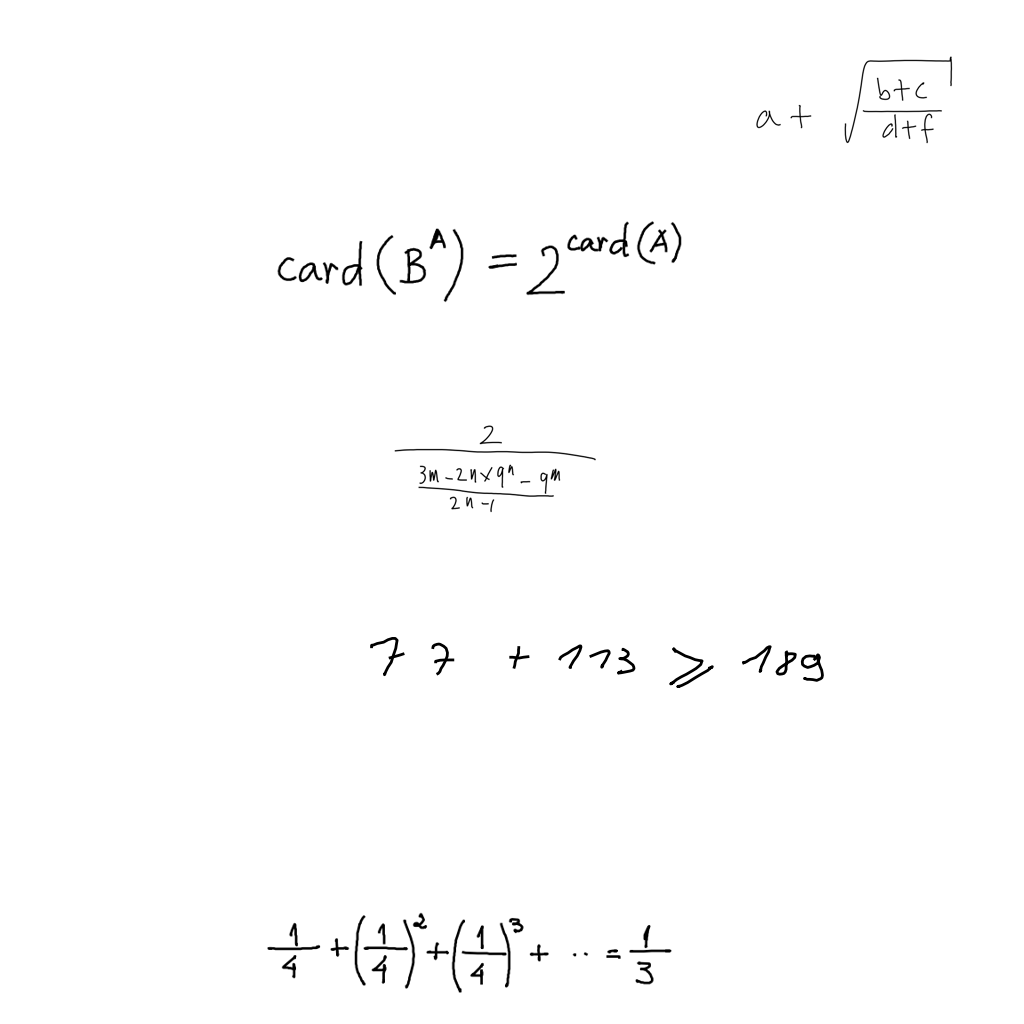 a + \sqrt{\frac{b+c}{d+f}}
card(B^A) = 2^{card(A)}
\frac{2}{\frac{3m-2n \times 9^n - 9^m}{2n-1}}
77 + 113 \geqslant 189
\frac{1}{4} + \left(\frac{1}{4}\right)^2 + \left(\frac{1}{4}\right)^3 + \cdot\cdot = \frac{1}{3}